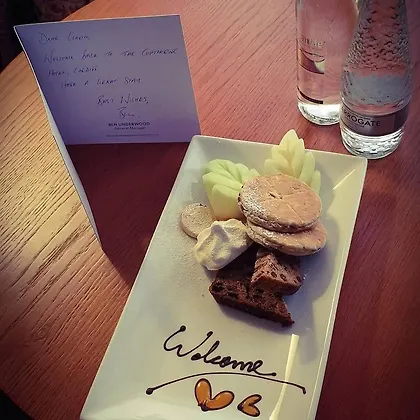 DEAR
WELCOME BACK TO THE COPTHORNE
HOTEL CARDIFF.
HAVE A GREAT STAY
BEST WISHES,
Ben
BEN UNDERWOOD
General Manager
ROGATE
Welcome